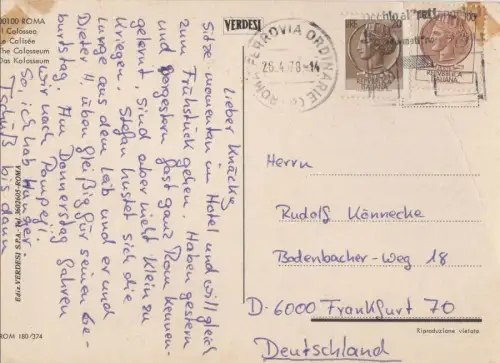 00100 ROMA
Il Colosseo
Le Colisée
The Colosseum
Das Kolosseum
VERDESI
ROMA FERROVIA ORDINARIE
26.4.78-14
LIRE 20
100
REPUBBLICA
ITALIANA
Lieber Knücky
Sitze momentan im Hotel und will gleich
zum Frühstück gehen. Haben gestern
und vorgestern fast ganz Rom kennen-
gelernt, sind aber nicht klein zu
kriegen. Stefan hustet sich die
Lunge aus dem Leib und er und
Dieter II. üben fleißig für seinen Ge-
burtstag. Am Donnerstag fahren
wir nach Pompeji.
So, ich hab Hunger
Tschüß bis dann
Herrn
Rudolf Könnecke
Bodenbacher-Weg 18
D-6000 Frankfurt 70
Deutschland
Riproduzione vietata
ROM 180/374